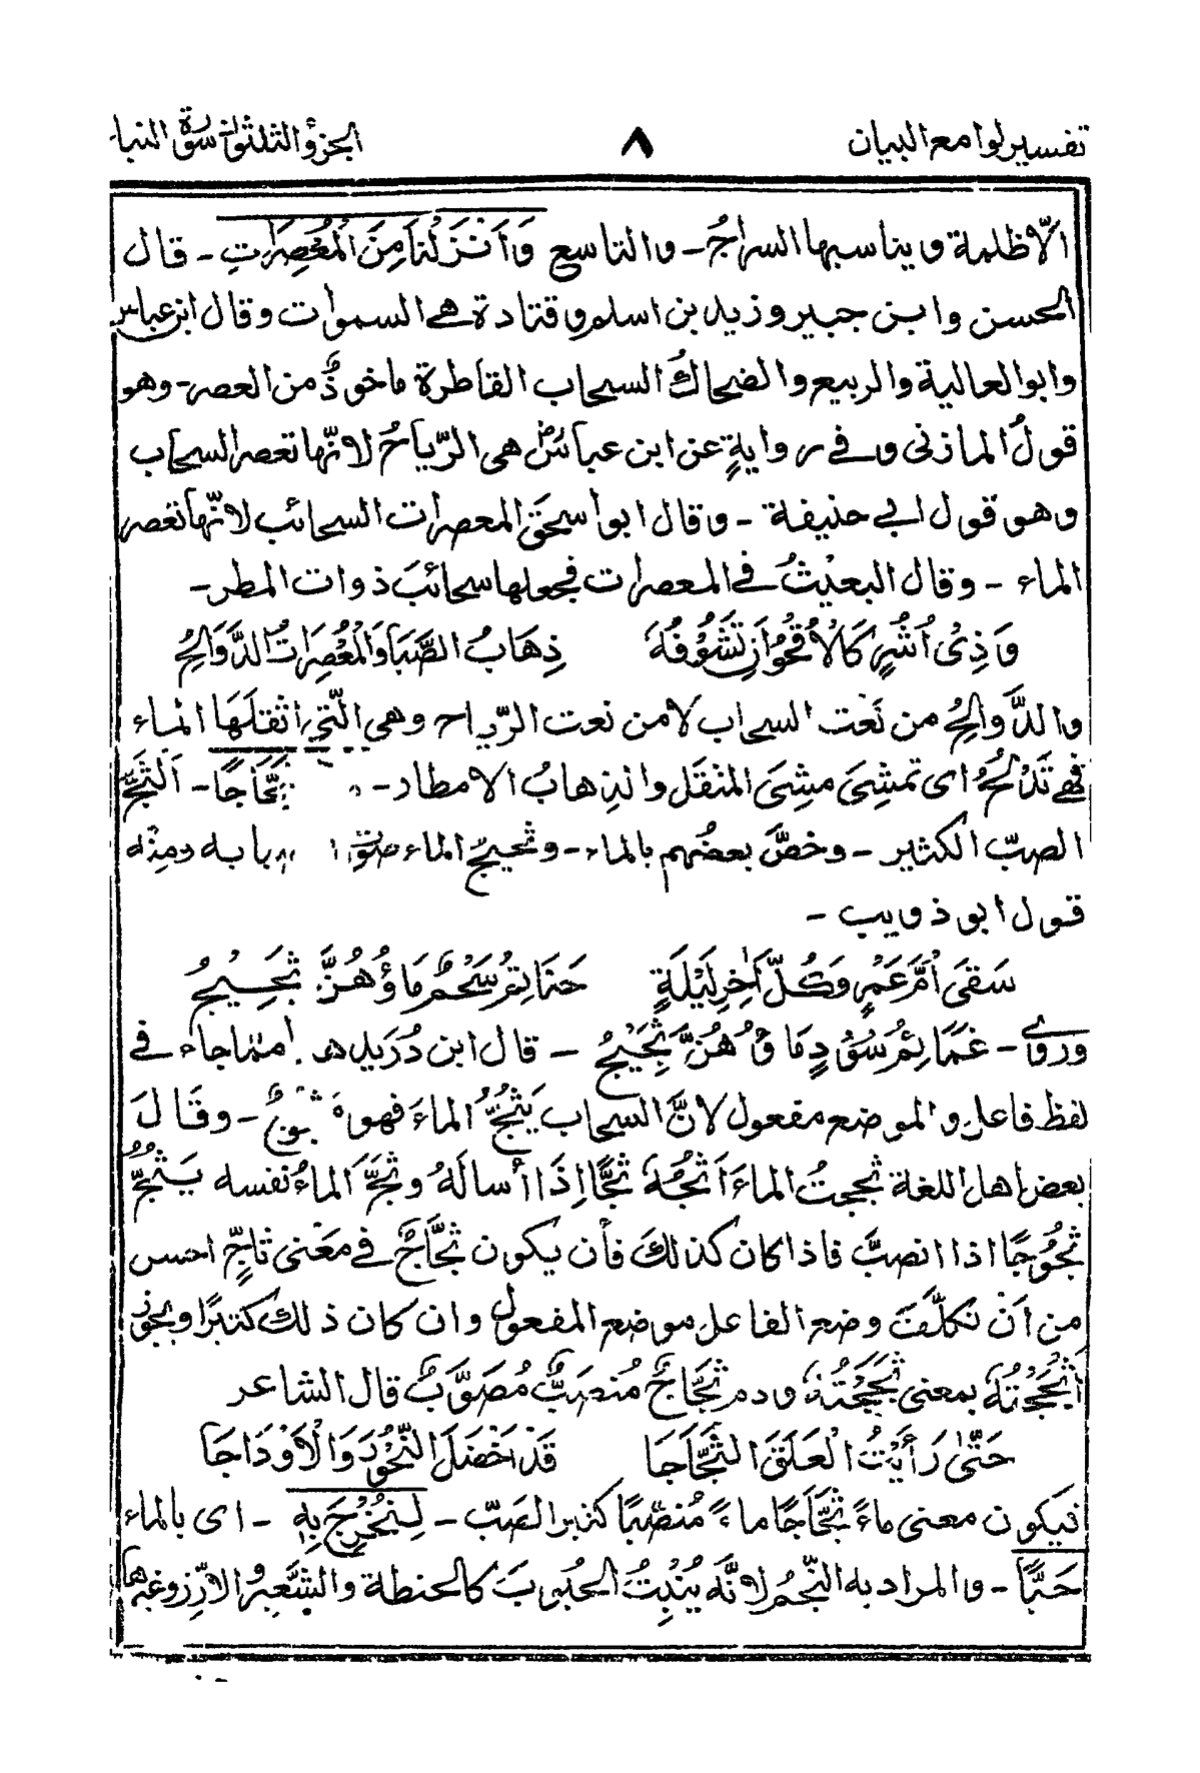 تفسير لوامع البيان ٨ الجزؤ الثلثون سورة النبا
الّا ظلمة ويناسبها السراجُ - والتاسع وَاَنْزَلْنَا مِنَ الْمُعْصِرَاتِ - قال
الحسن وابن جبير وزيد بن اسلم وقتادة هے السموات وقال ابن عباس
وابو العالية والربيع والضحاك السحاب القاطرة ماخوذٌ من العصر - وهو
قولُ المازنى وفے روايةٍ عن ابن عباسؓ هى الرّياحُ لانّها تعصر السحاب
وهو قول ابى حنيفة - وقال ابو اسحٰق المعصرات السحائب لانّها تعصر
الماء - وقال البعيثُ فے المعصرات فجعلها سحائبَ ذوات المطر -
وَذِىْ اُشُرٍ كَالْاُقْحُوَانِ تَشُوْفُهٗ ذِهَابُ الصَّبَا وَالْمُعْصِرَاتُ الدَّوَالِحُ
والدَّوالِحُ من نَعْت السحاب لامن نعت الرّياح وهى الّتى اثقلَهَا الماء
فهے تَدْلَحُ اى تمشِىَ مشِىَ المثقَل والذهابُ الامطار - ثَجَّاجًا - اَلثَّجُّ
الصبّ الكثير - وخصَّ بعضُهم بالماء - وثجيجُ الماء صوت بابه ومنه
قول ابو ذويب -
سَقَى اُمَّ عَمْرٍ وَكُلَّ اٰخِرِ لَيْلَةٍ حَنَاتِمُ سُحْمٌ مَاؤُهُنَّ ثَجِيْجُ
ورُوِى - غَمَائِمُ سُوْدٍ مَاؤُهُنَّ ثَجِيْجُ - قال ابن دُرَيد هـ امما جاء فے
لفظ فاعل والموضع مفعول لانَّ السحاب يَثُجُّ الماءَ فهو - وقَالَ
بعض اهل اللغة ثججتُ الماءَ اَثُجُّهٗ ثَجًّا اِذَا أسالَهُ وثَجَّ الماءُ نفسه يَثُجُّ
ثُجُوْجًا اذا انصبَّ فاذا كان كذلكَ فأن يكون ثَجَّاجٌ فے مَعْنى ثاجٍّ احسن
من اَنْ نَتكلّفَ وضع الفاعل موضع المفعول وان كان ذلك كثيرًا ويجوز
أثْجَجْتُهٗ بمعنى ثَجَجْتُهٗ ودم ثَجَّاجٌ مُنصَبٌّ مُصَوَّبٌ قال الشاعر
حَتّٰى رَأَيْتُ الْعَلَقَ الثَّجَّاجَا قَدْ اَخْضَلَ النُّحُوْرَ وَالْاَوْدَاجَا
فيكون معنى ماءً ثَجَّاجًا ماءً مُنْصَبًّا كثير الصَبّ - لِنُخْرِجَ بِهٖ - اى بالماء
حَبًّا - والمراد به النّجمُ لانَّه يُنْبِتُ الحبوبَ كالحنطة والشَّعِيرِ والارزّ وغيرها